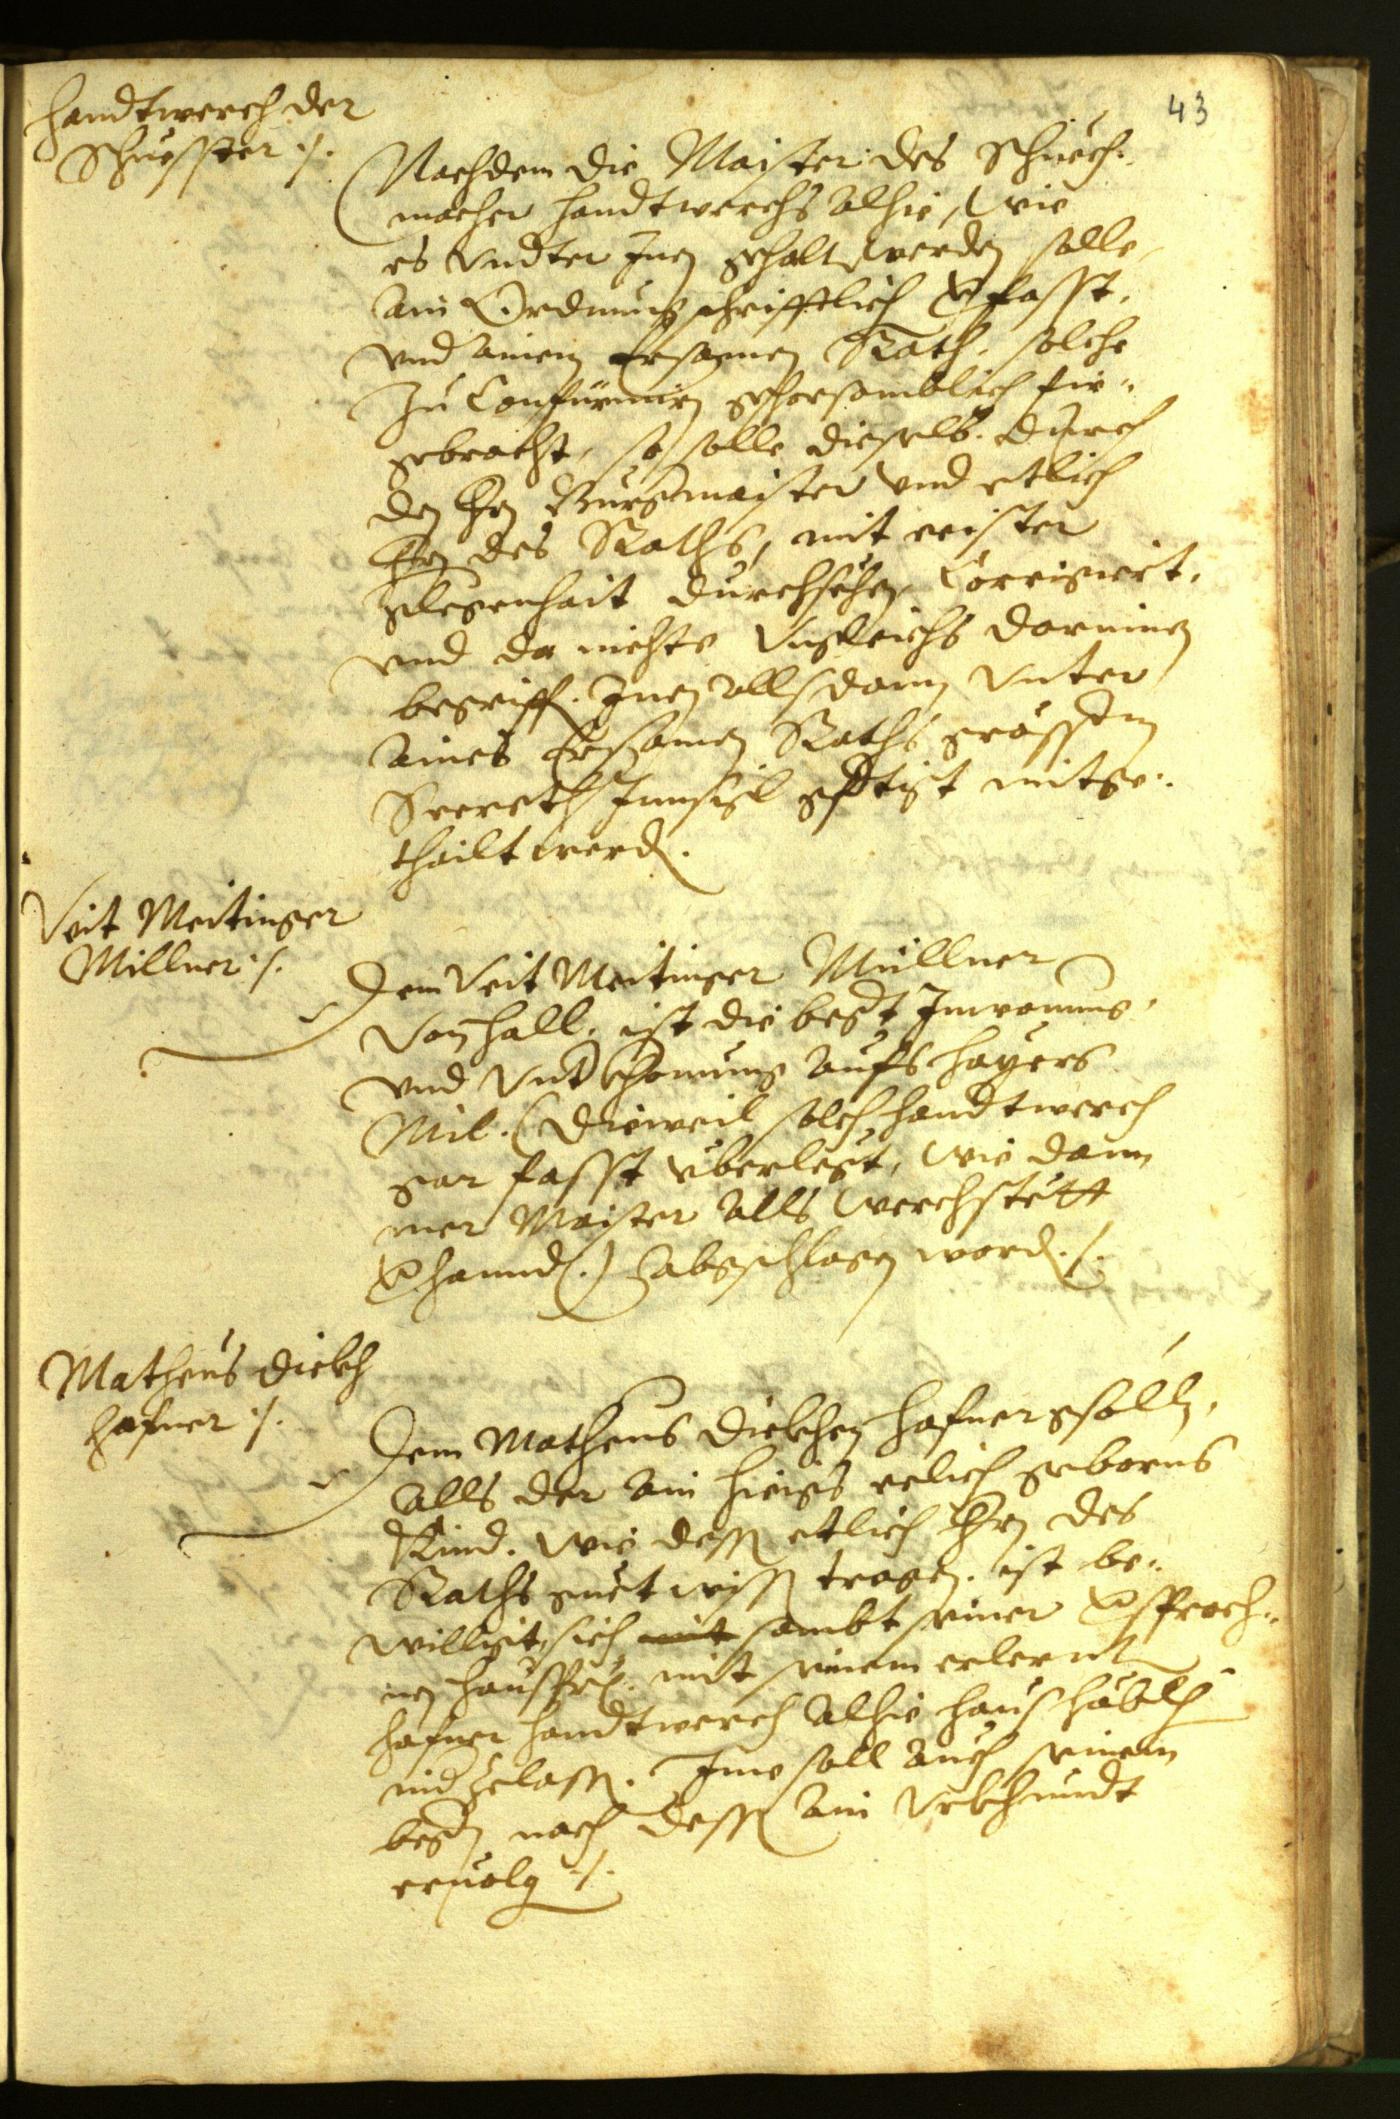 43
Handtwerch der
Schuesster ./.
Nachdem die Maister des Schuech-
macher Handtwerchs alhie, wie
es vndter Inen gehalten werden solle,
ain Ordnung schrifftlich verfasst,
vnd ainem Ersamen Rath, solche
zu Confürmirn gehorsamblich fir-
gebracht, so solle dieselb durch
den Hrn Burgmaister vnd etlich
Hrn des Raths, mit eeister
glegenhait durchsehen, Corrigiert,
vnd da nichts vngleichs darinnen
begriffen. Inen allsdann vnter
aines Ersamen Raths grössern
Secreth Innsigl gefertigt mitge-
thailt werden.
Veit Meitinger
Millner ./.
Dem Veit Meitinger Müllner
von Hall, ist die begert Inwonung,
vnd vnderkhomung aufs Hayers
Mil. (Dieweil solch Handtwerch
gar fasst yberlegt, wie dann
mer Maister alls Werchstett
verhannden.) abgschlagen worden ./.
Matheus Dickh
Hafner ./.
Dem Matheus Dickhen Hafnergsölln,
alls der ain hiegs eelich geborns
Kind, wie dessen etlich Hrn des
Raths guet wissen tragen, ist be-
willigt, sich mit sambt seiner versproch-
nen Haussfrn. mit seinem erlernten
Hafner Handtwerch alhie haushäblich
nidzelassen. Ime soll auch seinem
begern nach dessen ain Vrkhundt
ervolgen ./.